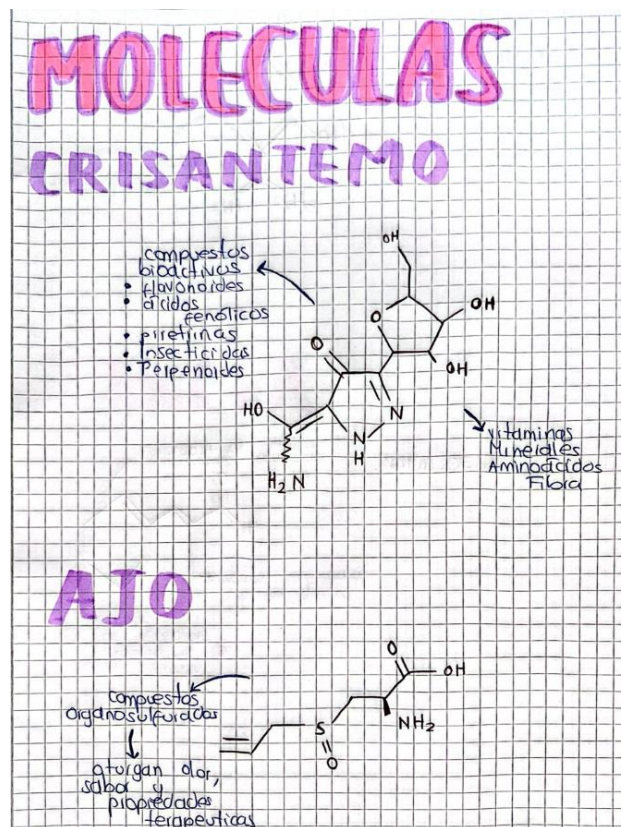 MOLECULAS
CRISANTEMO
compuestos
bioactivos
• flavonoides
• ácidos
fenólicos
• piretrinas
• Insecticidas
• Perpenoides
OH
O
OH
OH
O
HO
N
N
H
H₂N
vitaminas
Minerales
Aminoácidos
Fibra
AJO
compuestos
organosulfurados
oturgan olor,
sabor y
propiedades
terapeuticas
O
OH
S
NH₂
O